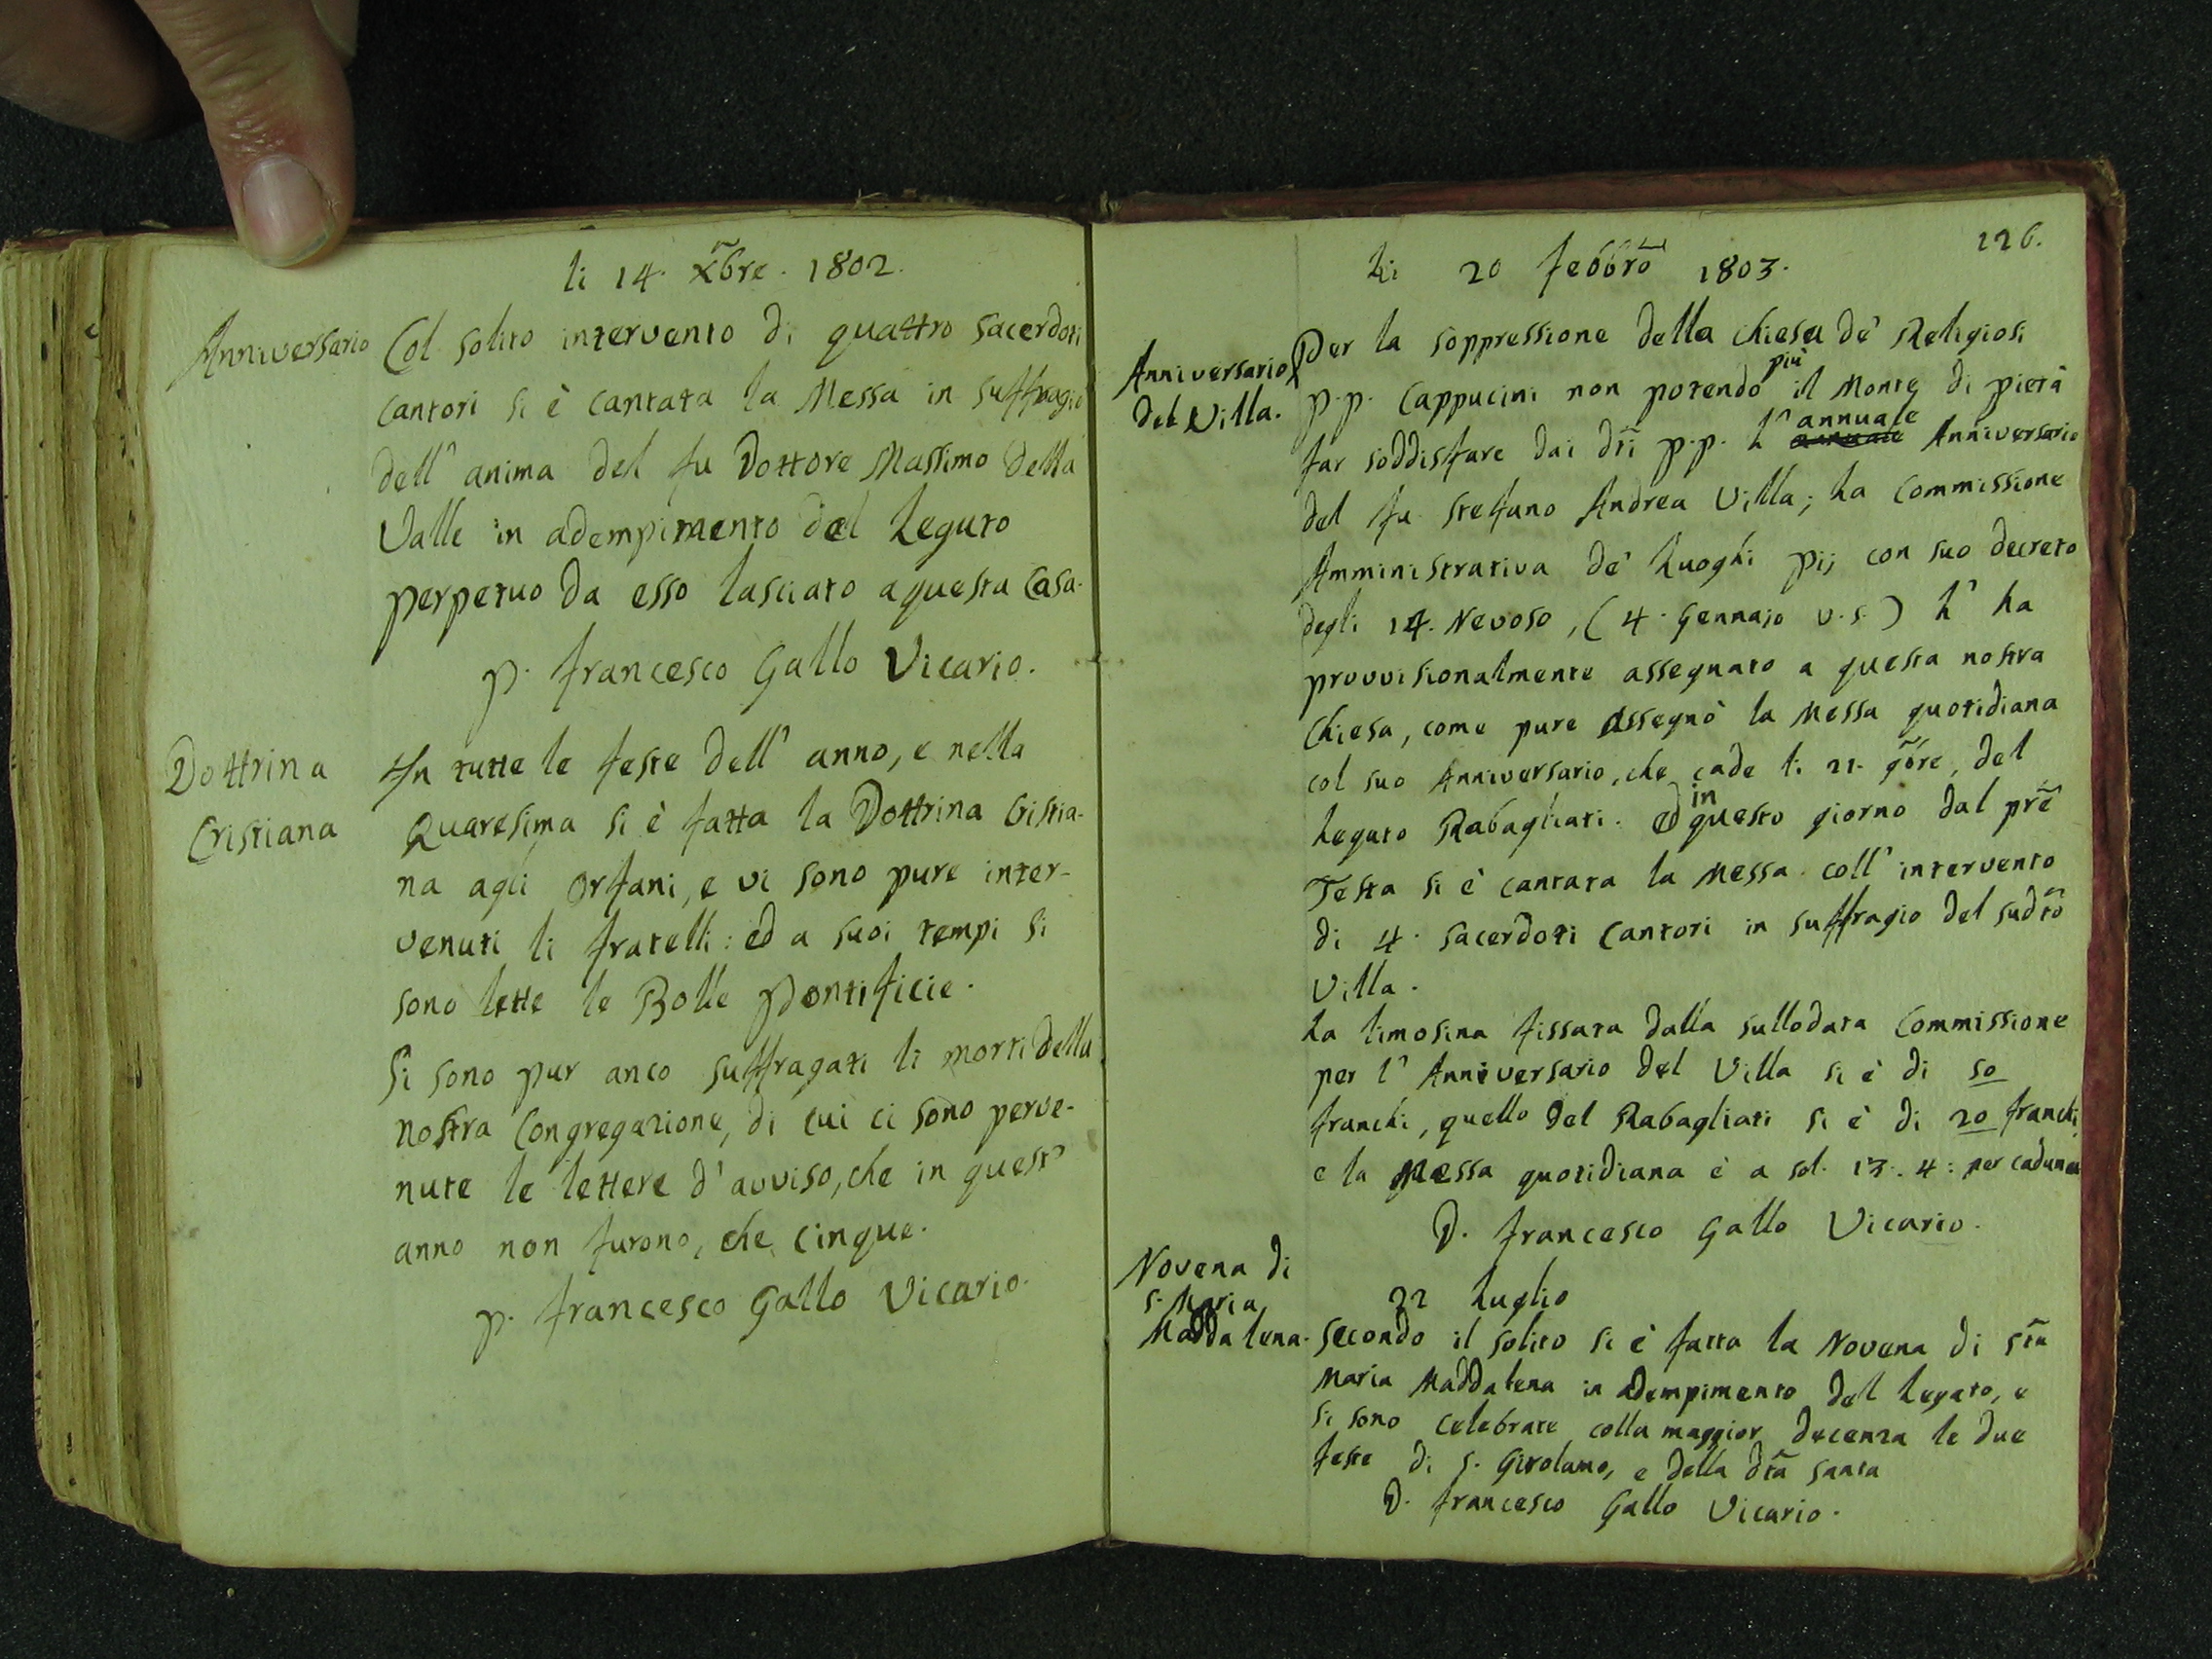 li 14. Xbre. 1802.
Anniversario
Col solito intervento di quattro Sacerdoti
Cantori si è cantata la Messa in suffragio
dell' anima del fu Dottore Massimo Della
Valle in adempimento del Legato
perpetuo da esso lasciato a questa Casa.
p. Francesco Gallo Vicario.
Dottrina
Cristiana
In tutte le feste dell' anno, e nella
Quaresima si è fatta la Dottrina Cristia-
na agli Orfani, e vi sono pure inter-
venuti li fratelli: ed a suoi tempi si
sono lette le Bolle Pontificie.
Si sono pur anco suffragati li morti della
nostra Congregazione, di cui ci sono perve-
nute le lettere d'avviso, che in quest'
anno non furono, che cinque.
p. Francesco Gallo Vicario.
126.
Li 20 Febbro 1803.
Anniversario
del Villa.
Per la soppressione della Chiesa de' Religiosi
p.p. Cappucini non potendo più il Monte di pietà
far soddisfare dai dti p.p. l' annuale Anniversario
del fu Stefano Andrea Villa; La Commissione
Amministrativa de' Luoghi pij con suo decreto
degli 14. Nevoso, (4. Gennajo v.s.) l' ha
provvisionalmente assegnato a questa nostra
Chiesa, come pure assegnò la Messa quotidiana
col suo Anniversario, che cade li 21. 9bre, del
Legato Rabagliati. ed in questo giorno dal pre
Testa si è cantata la Messa coll' intervento
di 4. Sacerdoti Cantori in suffragio del sudto
Villa.
La limosina fissata dalla sullodata Commissione
per l' Anniversario del Villa si è di 50
franchi, quello del Rabagliati si è di 20 franchi
e la Messa quotidiana è a sol. 13. 4: per caduna
D. Francesco Gallo Vicario.
Novena di
S. Maria
Maddalena.
22 Luglio
Secondo il solito si è fatta la Novena di Sta
Maria Maddalena in adempimento del Legato, e
si sono celebrate colla maggior decenza le due
feste di S. Girolamo, e della dta Santa
D. Francesco Gallo Vicario.